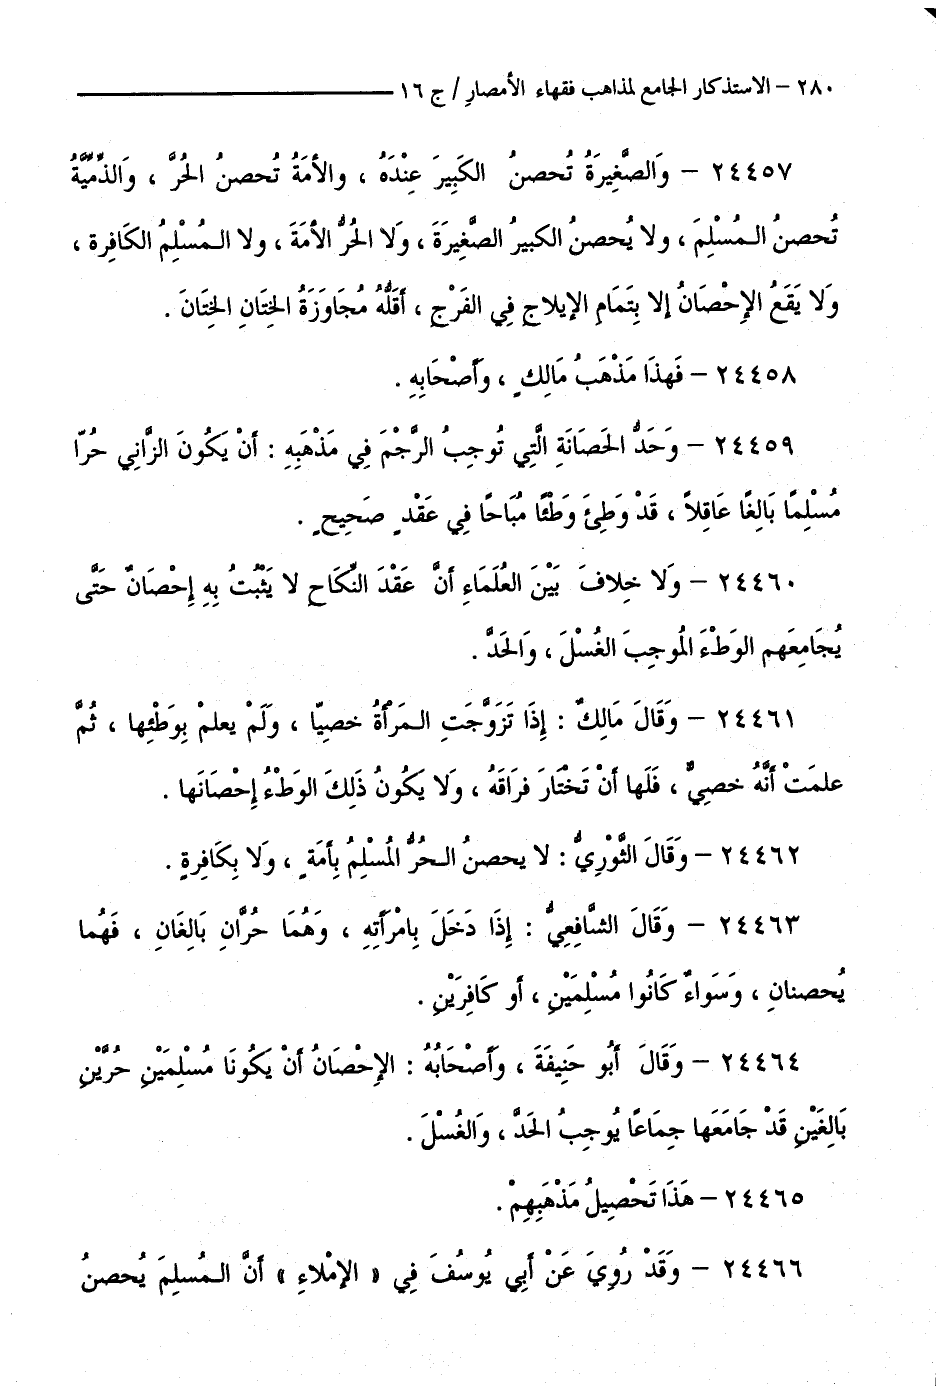 ٢٨٠ – الاستذكار الجامع لمذاهب فقهاء الأمصارِ / ج ١٦
٢٤٤٥٧ – وَالصَّغِيرَةُ تُحصنُ الكَبِيرَ عِنْدَهُ ، والأمَةُ تُحصنُ الحُرَّ ، وَالذِّمِّيَّةُ
تُحصنُ المُسْلِمَ ، ولا يُحصنُ الكبيرُ الصَّغِيرَةَ ، وَلا الحُرُّ الأمَةَ ، ولا المُسْلِمُ الكَافِرة ،
وَلا يَقَعُ الإِحْصَانُ إلا بِتَمَامِ الإيلاجِ فِي الفَرْجِ ، أَقَلُّهُ مُجَاوَزَةُ الخِتَانِ الخِتَانَ .
٢٤٤٥٨ – فَهذَا مَذْهَبُ مَالِكٍ ، وَأَصْحَابِهِ .
٢٤٤٥٩ – وَحَدُّ الحَصَانَةِ الَّتِي تُوجِبُ الرَّجْمَ فِي مَذْهَبِهِ : أنْ يَكُونَ الزَّانِي حُرّا
مُسْلِمًا بَالِغًا عَاقِلاً ، قَدْ وَطِئَ وَطْئًا مُبَاحًا فِي عَقْدٍ صَحِيحٍ .
٢٤٤٦٠ – وَلا خِلافَ بَيْنَ العُلَمَاءِ أنَّ عَقْدَ النِّكَاحِ لا يَثْبُتُ بِهِ إِحْصَانٌ حَتَّى
يُجَامِعَهم الوَطْءَ المُوجِبَ الغُسْلَ ، وَالحَدَّ .
٢٤٤٦١ – وَقَالَ مَالِكٌ : إِذَا تَزَوَّجَتِ المَرْأةُ خصيّا ، وَلَمْ يعلمْ بِوَطْئِها ، ثُمَّ
علمَتْ أنَّهُ خصيٌّ ، فَلَها أنْ تَخْتَارَ فرَاقَهُ ، وَلا يَكُونُ ذَلِكَ الوَطْءُ إِحْصَانَها .
٢٤٤٦٢ – وَقَالَ الثَّوْرِيُّ : لا يحصنُ الحرُّ المُسْلِمُ بِأمَةٍ ، وَلا بِكَافِرةٍ .
٢٤٤٦٣ – وَقَالَ الشَّافِعِيُّ : إِذَا دَخَلَ بِامْرَأَتِهِ ، وَهُمَا حُرَّانِ بَالِغَانِ ، فَهُما
يُحصنانِ ، وَسَواءٌ كَانُوا مُسْلِمَيْنِ ، أو كَافِرَيْنِ .
٢٤٤٦٤ – وَقَالَ أبُو حَنِيفَةَ ، وَأَصْحَابُهُ : الإِحْصَانُ أنْ يَكُونَا مُسْلِمَيْنِ حُرَّيْنِ
بَالِغَيْنِ قَدْ جَامَعَها جِمَاعًا يُوجِبُ الحَدَّ ، وَالغُسْلَ .
٢٤٤٦٥ – هَذَا تَحْصِيلُ مَذْهَبِهِمْ .
٢٤٤٦٦ – وَقَدْ رُوِيَ عَنْ أبِي يُوسُفَ فِي « الإِمْلاءِ » أنَّ المُسلِمَ يُحصنُ